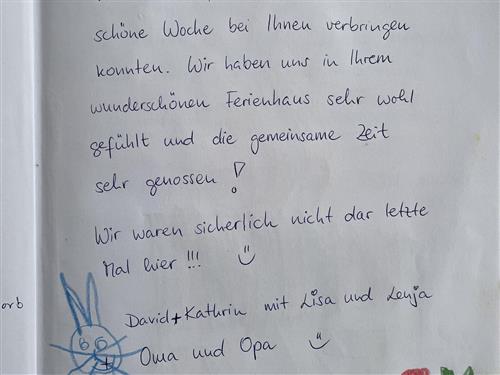 schöne Woche bei Ihnen verbringen
konnten. Wir haben uns in Ihrem
wunderschönen Ferienhaus sehr wohl
gefühlt und die gemeinsame Zeit
sehr genossen!
Wir waren sicherlich nicht dar letzte
Mal hier !!!
orb
David + Kathrin mit Lisa und Lenja
Oma und Opa